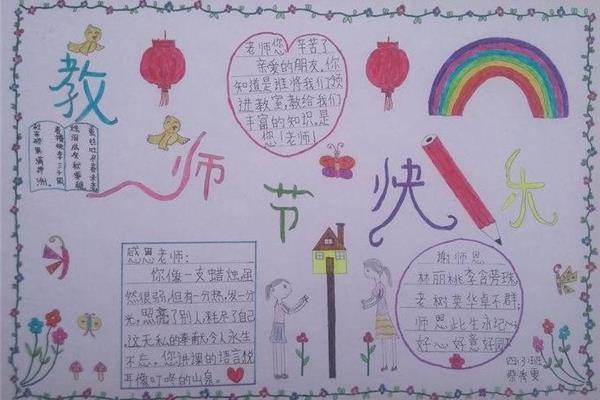 教师节快乐
老师您辛苦了
亲爱的朋友,你
知道是谁将我们领
进教室,教给我们
丰富的知识,是
您!老师!
感恩老师:
你像一支蜡烛虽
然很弱,但有一分热,发一分
光,照亮了别人,耗尽了自己
这无私的奉献,令人永生
不忘。您讲课的语言,悦
耳像叮咚的山泉。
谢师恩
林丽桃李含芳珠
老树英华卓不群
师恩此生永记心
好心好意好园
四.3班
蔡秀